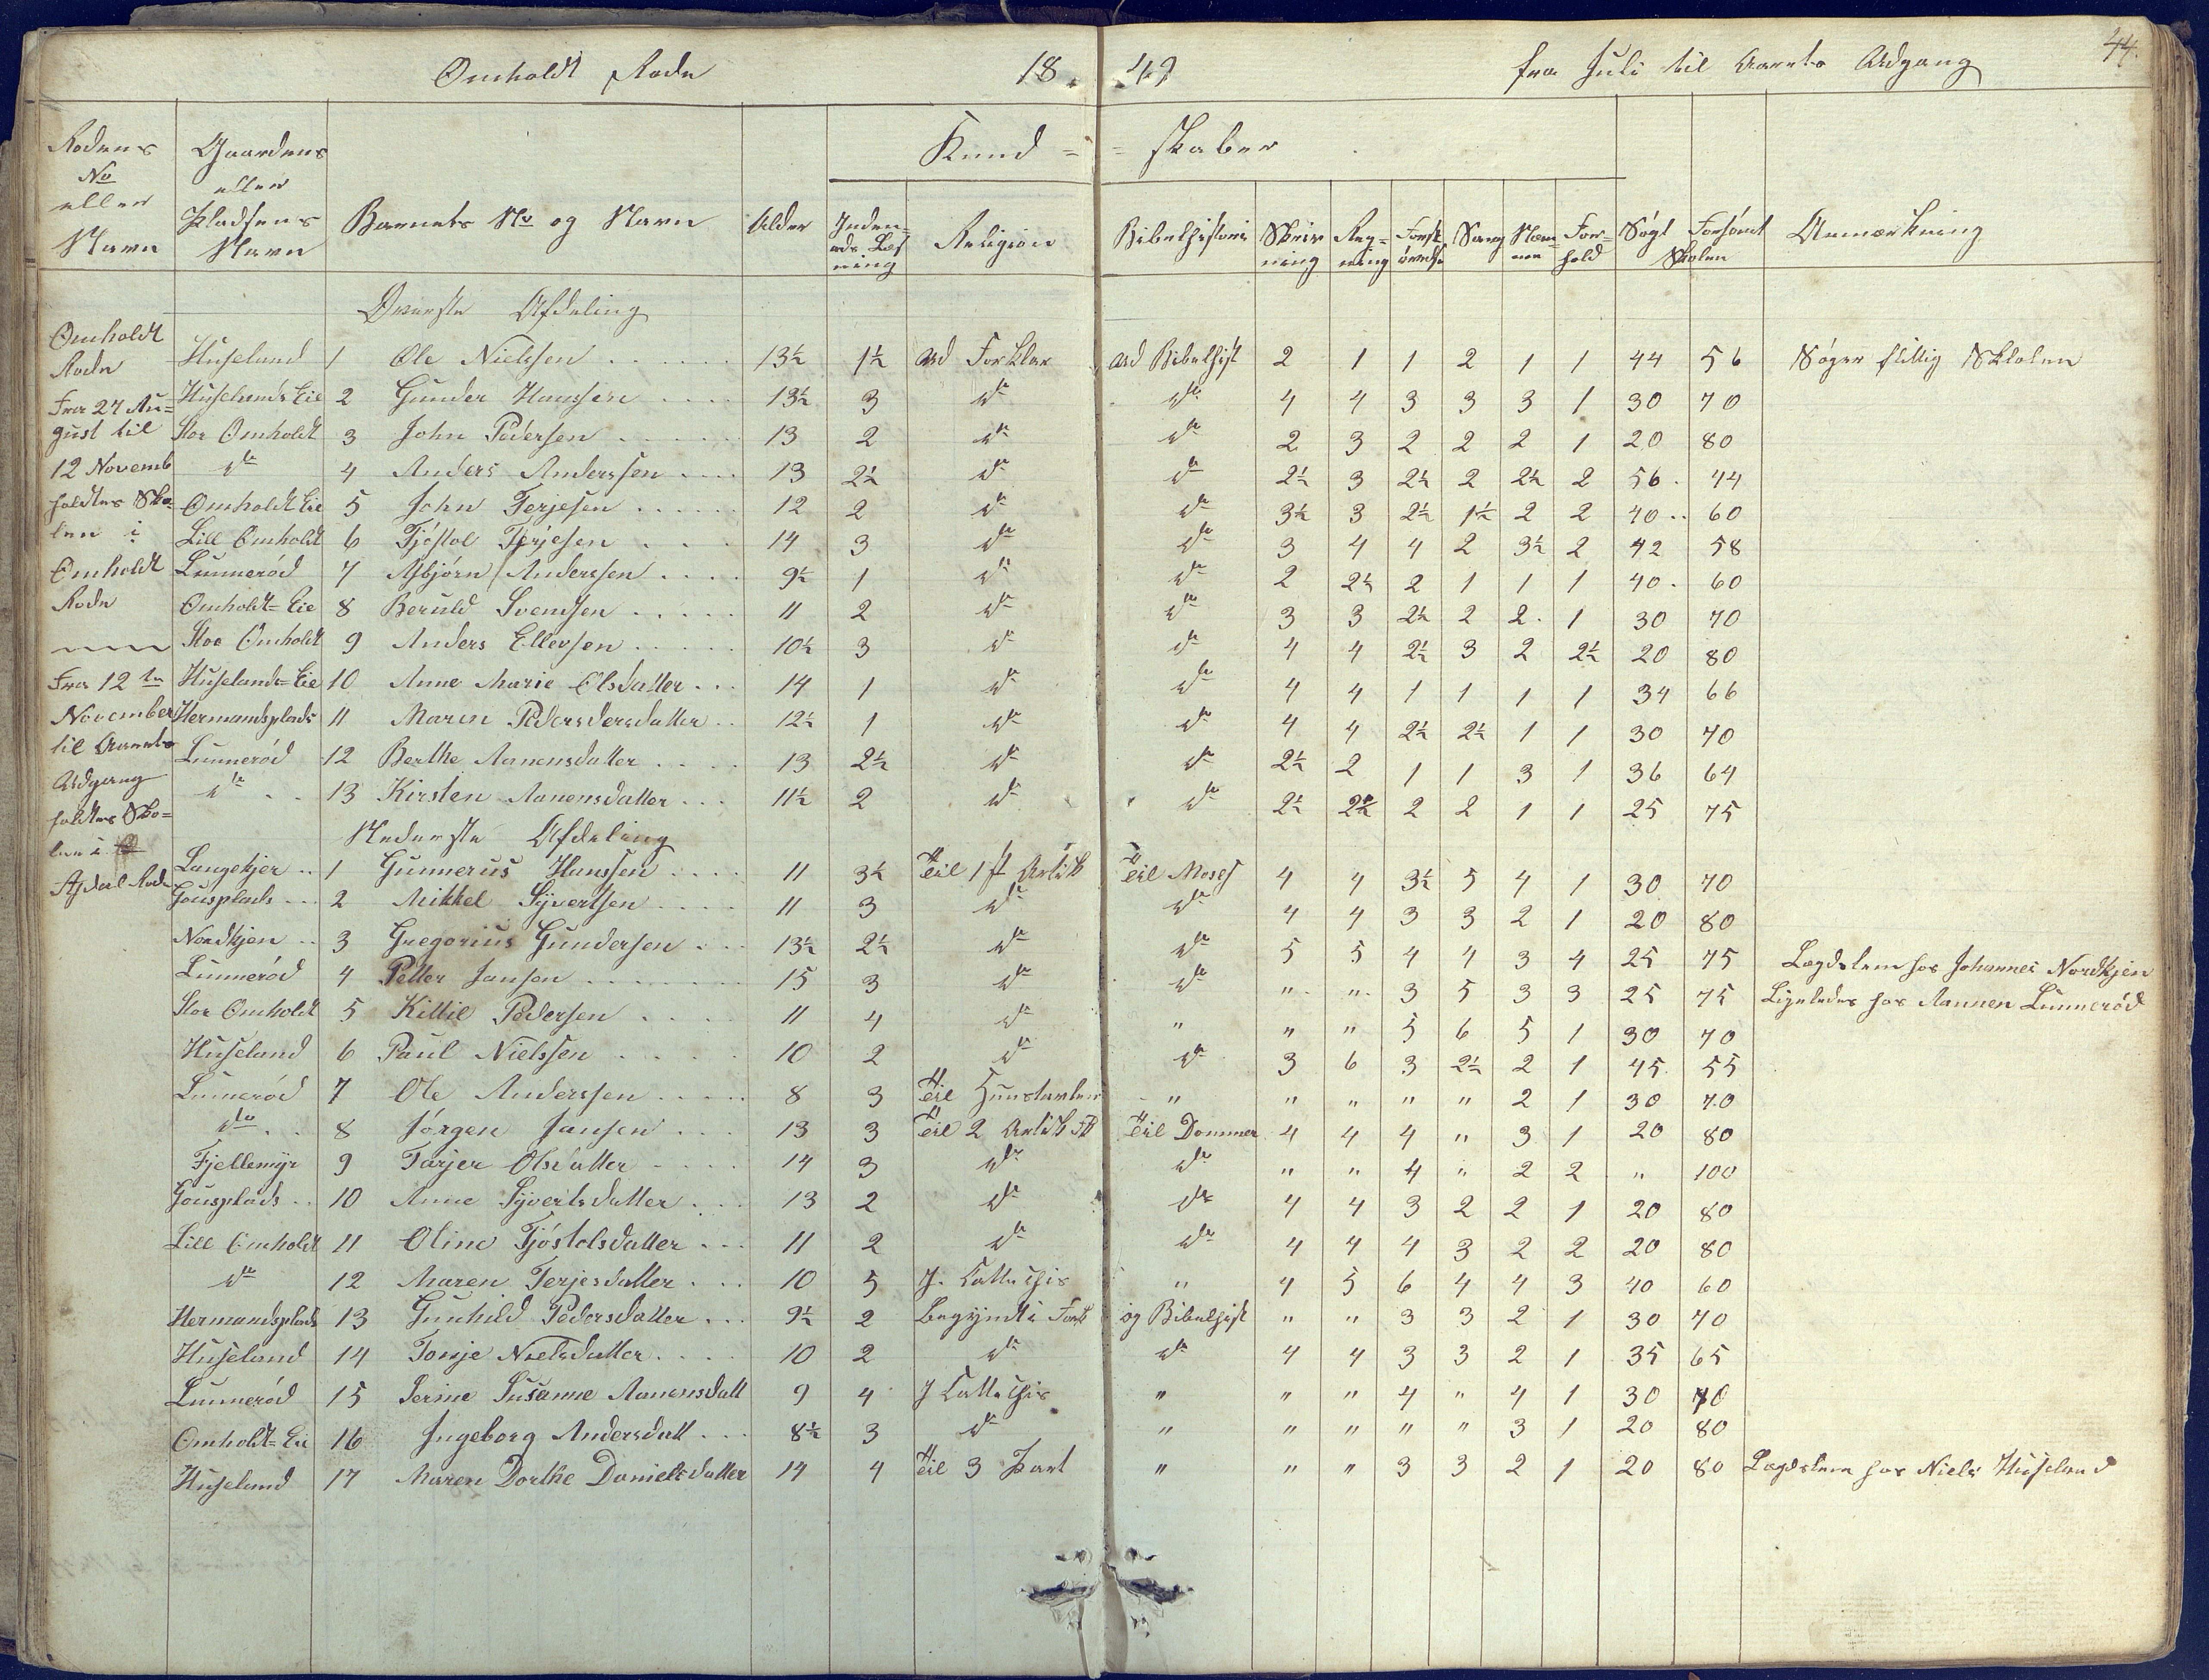 Omholdt Rode 18 49 fra Juli til Aarets Udgang 44.
Kund= =skaber
Rodens No eller Navn | Gaardens eller Pladsens Navn | Barnets No og Navn | Alder | Inden- ads Læs ning | Religion | Bibelhistorie | Skriv ning | Reg= ning | Sang | For= hold | Søgt | Forsømt | Skolen | Anmærkning
Øverste Afdeling
Omholdt Rode
Fra 27 Au= gust til 12 Novemb holdtes Sko- len i Omholdt Rode
Fra 12te November til Aarets Udgang holdtes Sko= len i
Huseland 1 Ole Nielssen 13½ 1½ ud Forklar ud Bibelhist 2 1 1 2 1 1 44 56 Søger flittig Skolen
Huselands Eie 2 Gunder Hanssen 13½ 3 do do 4 4 3 3 3 1 30 70
Stor Omholdt 3 John Pedersen 13 2 do do 2 3 2 2 2 1 20 80
do 4 Anders Anderssen 13 2½ do do 2½ 3 2½ 2 2½ 2 56 44
Omholdt Eie 5 John Terjesen 12 2 do do 3½ 3 2½ 1½ 2 2 40 60
Lill Omholdt 6 Tjøstol Terjesen 14 3 do do 3 4 4 2 3½ 2 42 58
Lunnerød 7 Asbjørn Anderssen 9½ 1 do do 2 2½ 2 1 1 1 40 60
Omholdt=Eie 8 Beruld Svendsen 11 2 do do 3 3 2½ 2 2 1 30 70
Stor Omholdt 9 Anders Ellevsen 10½ 3 do do 4 4 2½ 3 2 2½ 20 80
Huselands=Eie 10 Anne Marie Olsdatter 14 1 do do 4 4 1 1 1 1 34 66
Hermandsplads 11 Maren Pedersdersdatter 12½ 1 do do 4 4 2½ 2½ 1 1 30 70
Lunnerød 12 Berthe Aanensdatter 13 2½ do do 2½ 2 1 1 3 1 36 64
do 13 Kirsten Aanensdatter 11½ 2 do do 2½ 2½ 2 2 1 1 25 75
Nederste Afdeling
Langekjer 1 Gunnerus Hanssen 11 3½ Til 1st Artik Til Moses 4 4 3½ 5 4 1 30 70
Gousplads 2 Mikkel Syvertsen 11 3 do do 4 4 3 3 2 1 20 80
Nordkjen 3 Gregorius Gundersen 13½ 2½ do do 5 5 4 4 3 4 25 75 Lægdslem hos Johannes Nordkjen
Lunnerød 4 Petter Jansen 15 3 do do " " 3 5 3 3 25 75 Ligeledes hos Aannen Lunnerød
Stor Omholdt 5 Kittil Pedersen 11 4 do " " " 5 6 5 1 30 70
Huseland 6 Paul Nielssen 10 2 do do 3 6 3 2½ 2 1 45 55
Lunnerød 7 Ole Anderssen 8 3 Til Huustavlen " " " " " 2 1 30 70
do 8 Jørgen Jansen 13 3 Til 2 Artik Til Dommer 4 4 4 " 3 1 20 80
Fjellemyr 9 Tarjer Olsdatter 14 3 do do " " 4 " 2 2 " 100
Gousplads 10 Anne Syvertsdatter 13 2 do do 4 4 3 2 2 1 20 80
Lill Omholdt 11 Oline Tjøstolsdatter 11 2 do do 4 4 4 3 2 2 20 80
do 12 Maren Terjesdatter 10 5 J. Cattechis " 4 5 6 4 4 3 40 60
Hermandsplads 13 Gunhild Pedersdatter 9½ 2 begyndt i Fork og Bibelhist " " 3 3 2 1 30 70
Huseland 14 Tomje Nielsdatter 10 2 do do 4 4 3 3 2 1 35 65
Lunnerød 15 Serine Susanne Aanensdatt 9 4 J Cattechis " " " 4 " 4 1 30 70
Omholdt=Eie 16 Ingeborg Andersdatt 8½ 3 do " " " " " 3 1 20 80
Huseland 17 Maren Dorthe Danielsdatter 14 4 Til 3 Part " " " 3 3 2 1 20 80 Lægdslem hos Niels Huseland